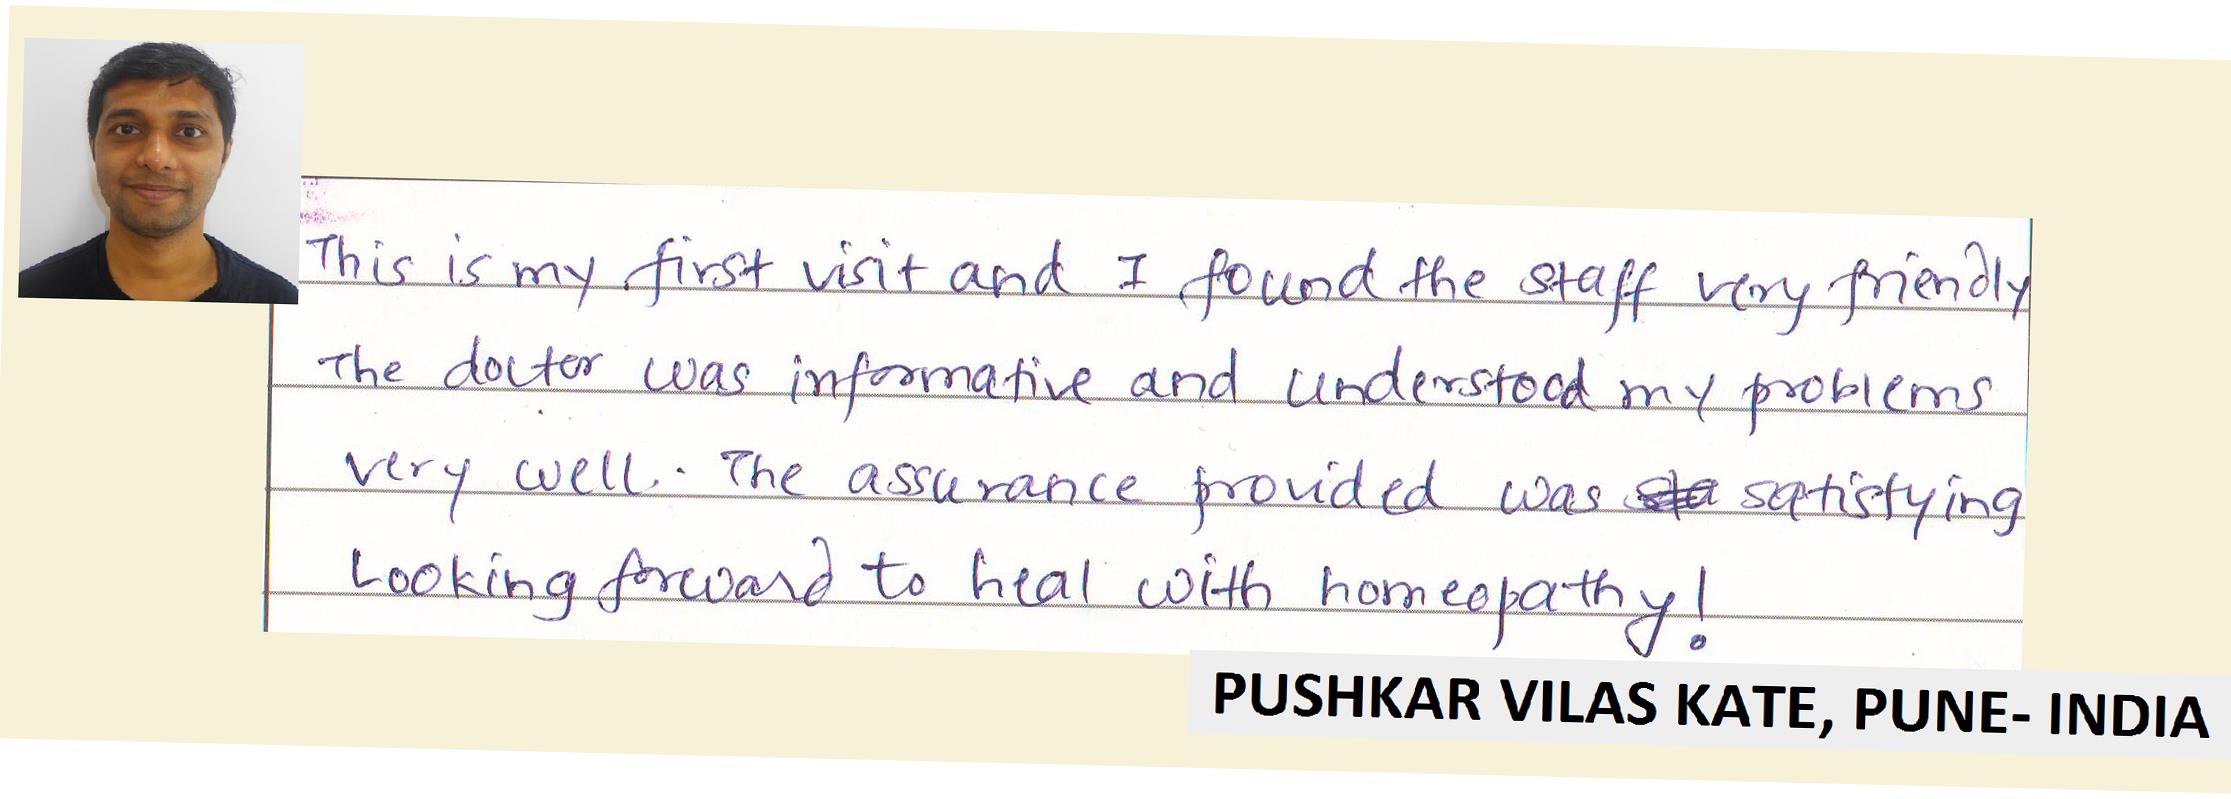 This is my first visit and I found the staff very friendly
The doctor was informative and understood my problems
very well. The assurance provided was satisfying
Looking forward to heal with homeopathy!
PUSHKAR VILAS KATE, PUNE- INDIA